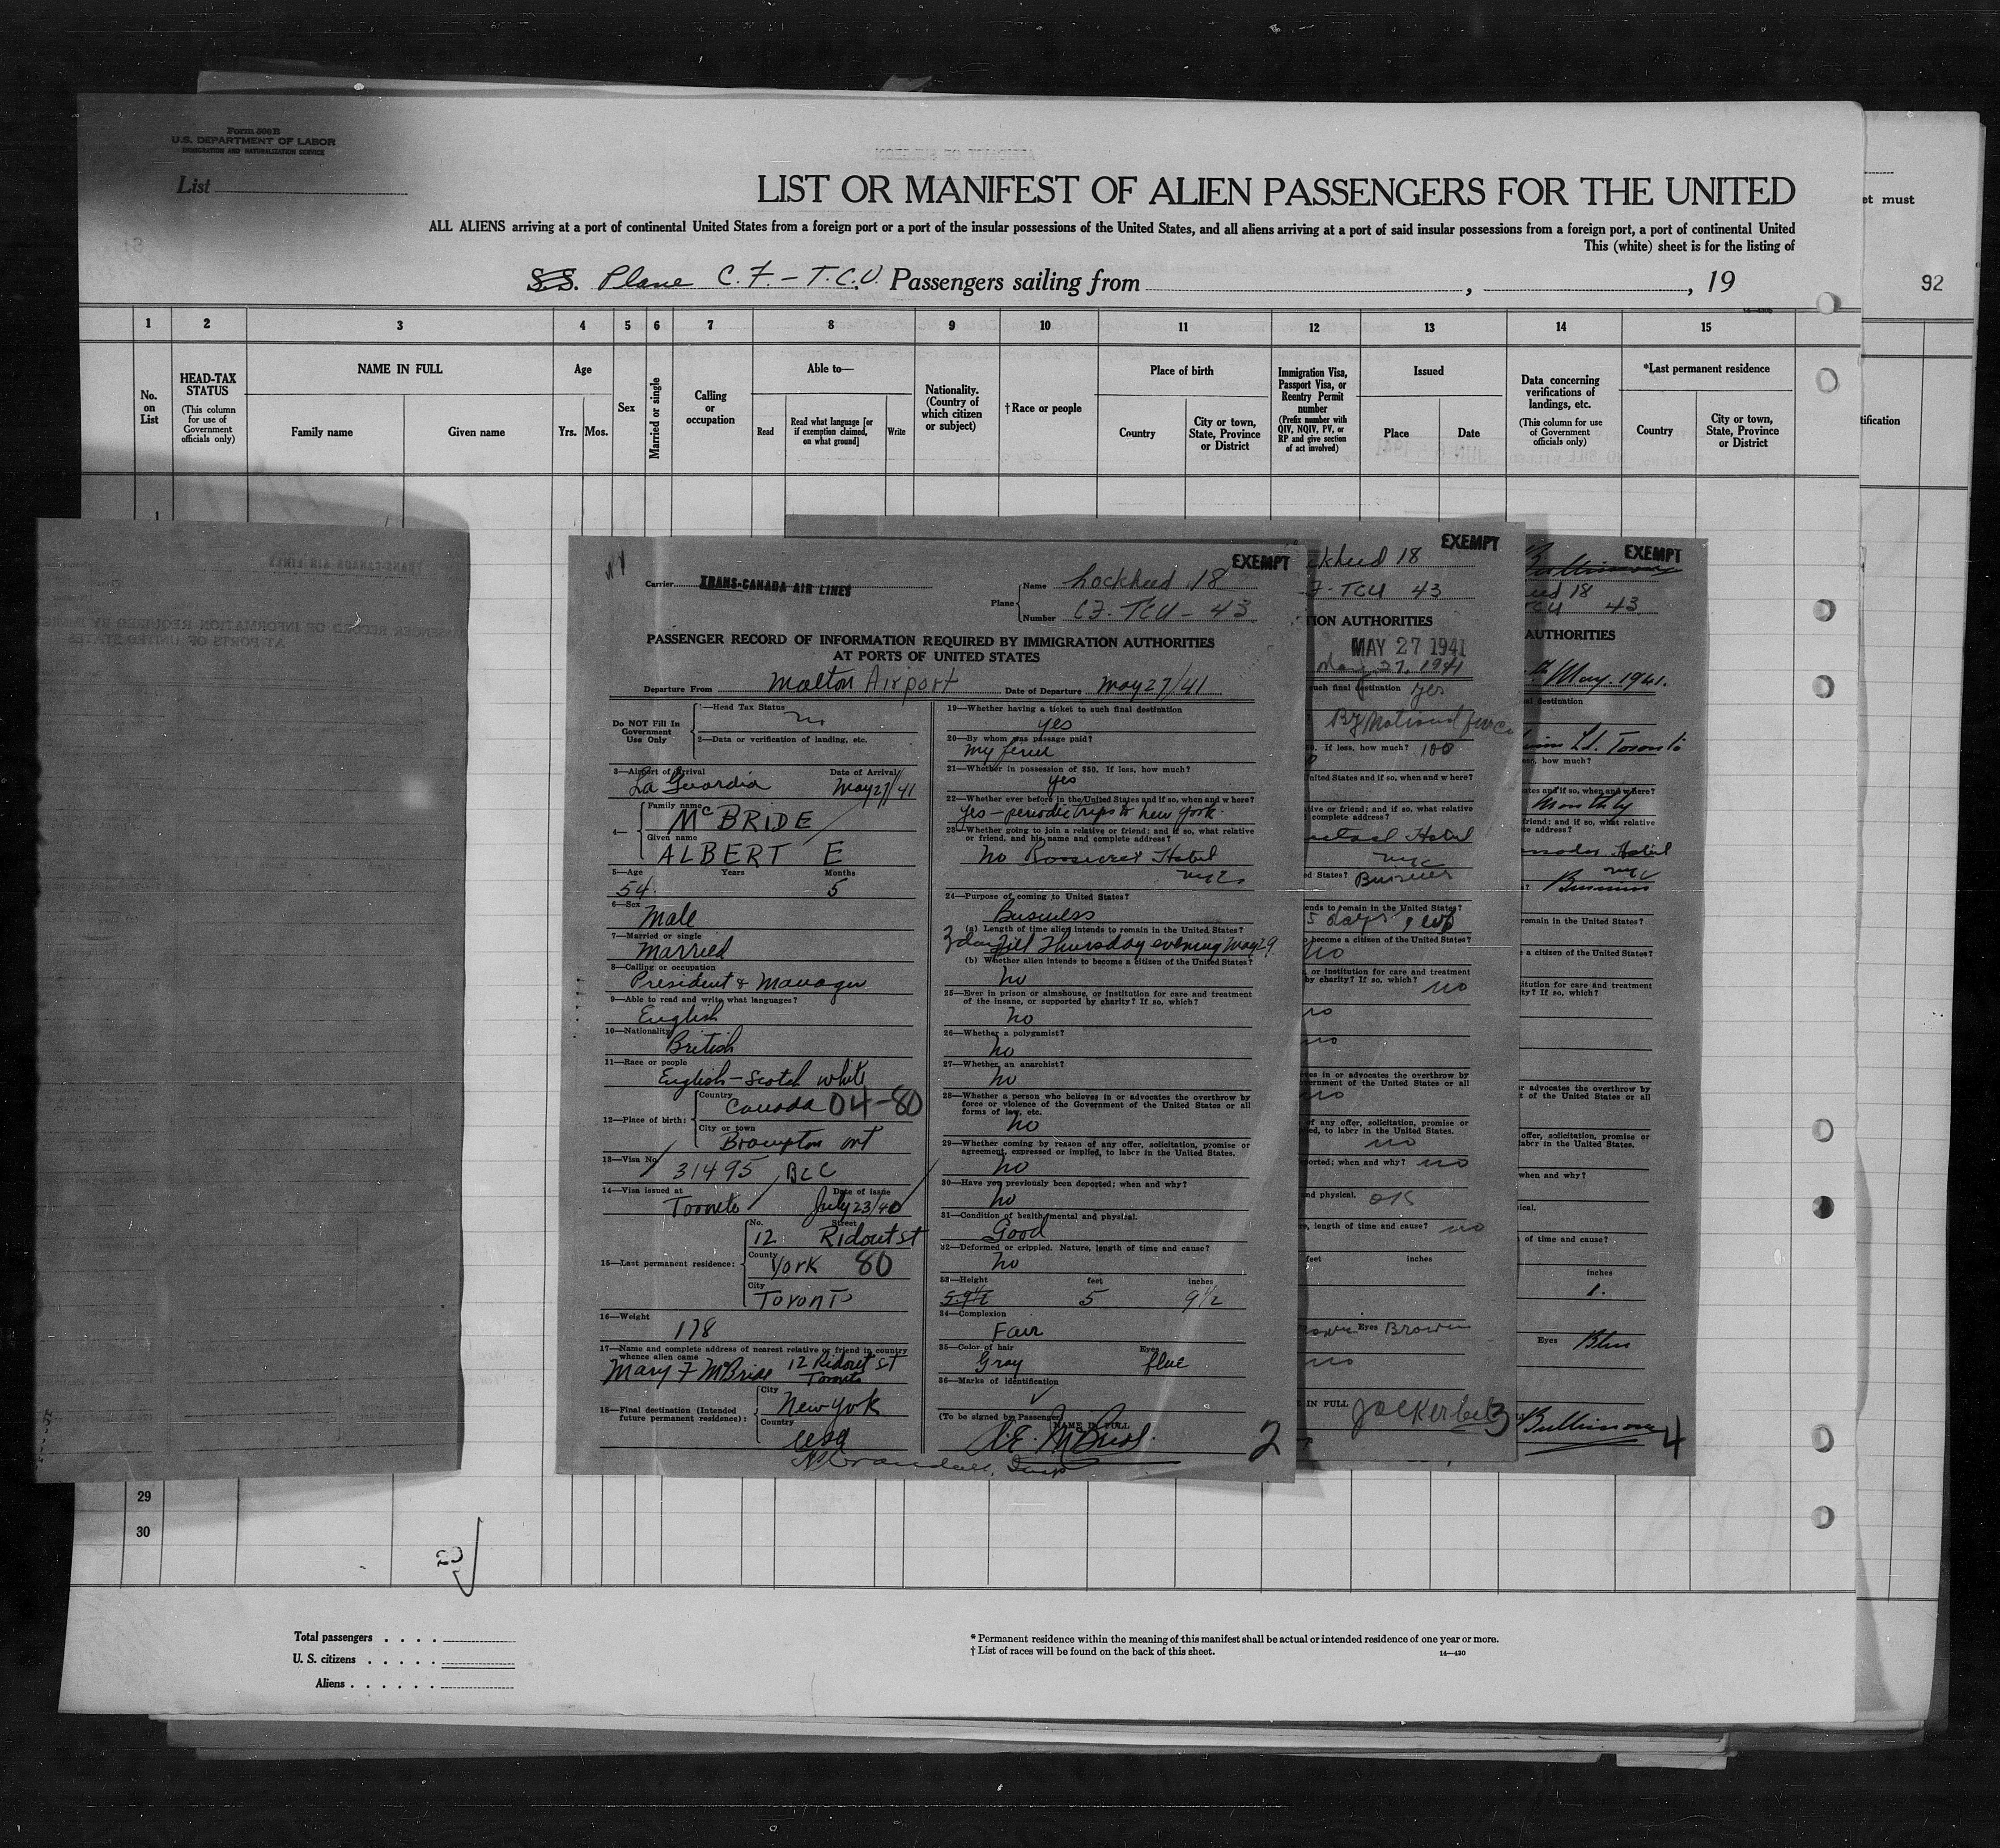 Form 500 B
U.S. DEPARTMENT OF LABOR
IMMIGRATION AND NATURALIZATION SERVICE
List
LIST OR MANIFEST OF ALIEN PASSENGERS FOR THE UNITED
ALL ALIENS arriving at a port of continental United States from a foreign port or a port of the insular possessions of the United States, and all aliens arriving at a port of said insular possessions from a foreign port, a port of continental United
This (white) sheet is for the listing of
S.S. Plane C.F.-T.C.U. Passengers sailing from , , 19
et must
92
1 2 3 4 5 6 7 8 9 10 11 12 13 14 15
No. on List
HEAD-TAX STATUS
(This column for use of Government officials only)
NAME IN FULL
Family name Given name
Age
Yrs. Mos.
Sex
Married or single
Calling or occupation
Able to—
Read
Read what language [or if exemption claimed, on what ground]
Write
Nationality. (Country of which citizen or subject)
†Race or people
Place of birth
Country
City or town, State, Province or District
Immigration Visa, Passport Visa, or Reentry Permit number
(Prefix number with QIV, NQIV, PV, or RP and give section of act involved)
Issued
Place Date
Data concerning verifications of landings, etc.
(This column for use of Government officials only)
*Last permanent residence
Country
City or town, State, Province or District
tification
1
EXEMPT
Carrier TRANS-CANADA AIR LINES
Plane Name Lockheed 18
Number CF-TCU-43
PASSENGER RECORD OF INFORMATION REQUIRED BY IMMIGRATION AUTHORITIES
AT PORTS OF UNITED STATES
Departure From Malton Airport Date of Departure May 27/41
Do NOT Fill In Government Use Only
1—Head Tax Status
no
2—Data or verification of landing, etc.
3—Airport of Arrival Date of Arrival
La Guardia May 27/41
4—
Family name
McBRIDE
Given name
ALBERT E
5—Age Years Months
54 5
6—Sex
Male
7—Married or single
Married
8—Calling or occupation
President & Manager
9—Able to read and write what languages?
English
10—Nationality
British
11—Race or people
English-Scotch white
12—Place of birth:
Country
Canada 04-80
City or town
Brampton Ont
13—Visa No.
31495 BLC
14—Visa issued at Date of issue
Toronto July 23/40
15—Last permanent residence:
No. Street
12 Ridout St
County
York 80
City
Toronto
16—Weight
178
17—Name and complete address of nearest relative or friend in country
whence alien came
Mary F McBride 12 Ridout St
Toronto
18—Final destination (Intended future permanent residence):
City
New York
Country
USA
19—Whether having a ticket to such final destination
yes
20—By whom was passage paid?
my firm
21—Whether in possession of $50. If less, how much?
yes
22—Whether ever before in the United States and if so, when and where?
Yes - periodic trips to New York
23—Whether going to join a relative or friend; and if so, what relative
or friend, and his name and complete address?
No Hotel
nyc
24—Purpose of coming to United States?
Business
(a) Length of time alien intends to remain in the United States?
till Thursday evening May 29
(b) Whether alien intends to become a citizen of the United States?
no
25—Ever in prison or almshouse, or institution for care and treatment
of the insane, or supported by charity? If so, which?
no
26—Whether a polygamist?
no
27—Whether an anarchist?
no
28—Whether a person who believes in or advocates the overthrow by
force or violence of the Government of the United States or all
forms of law, etc.
no
29—Whether coming by reason of any offer, solicitation, promise or
agreement, expressed or implied, to labor in the United States.
no
30—Have you previously been deported; when and why?
no
31—Condition of health, mental and physical.
Good
32—Deformed or crippled. Nature, length of time and cause?
no
33—Height feet inches
5-9½ 5 9½
34—Complexion
Fair
35—Color of hair Eyes
Gray blue
36—Marks of identification
(To be signed by Passenger) NAME IN FULL
A.E. McBride
2
EXEMPT
ckheed 18
F-TCU 43
TION AUTHORITIES
MAY 27 1941
May 27, 1941
such final destination yes
. If less, how much? 100
nited States and if so, when and where?
tive or friend; and if so, what relative
complete address?
Hotel
nyc
ed States? Business
ends to remain in the United States?
5 days
o become a citizen of the United States?
no
or institution for care and treatment
by charity? If so, which?
no
no
no
ves in or advocates the overthrow by
ernment of the United States or all
no
of any offer, solicitation, promise or
ed, to labor in the United States.
no
ported; when and why? no
nd physical. OK
e, length of time and cause? no
feet inches
Eyes Brown
no
IN FULL
3
EXEMPT
ed 18
TCU 43
AUTHORITIES
May. 1941.
al destination
Ld. Toronto
ess, how much?
ates and if so, when and where?
Monthly
friend; and if so, what relative
te address?
Hotel
nyc
Business
remain in the United States?
e a citizen of the United States?
titution for care and treatment
ity? If so, which?
or advocates the overthrow by
t of the United States or all
offer, solicitation, promise or
labor in the United States.
when and why?
ical.
of time and cause?
inches
1.
Eyes Blue
4
29
30
20
Total passengers . . . .
U. S. citizens . . . . .
Aliens . . . . . .
* Permanent residence within the meaning of this manifest shall be actual or intended residence of one year or more.
† List of races will be found on the back of this sheet.
14—430